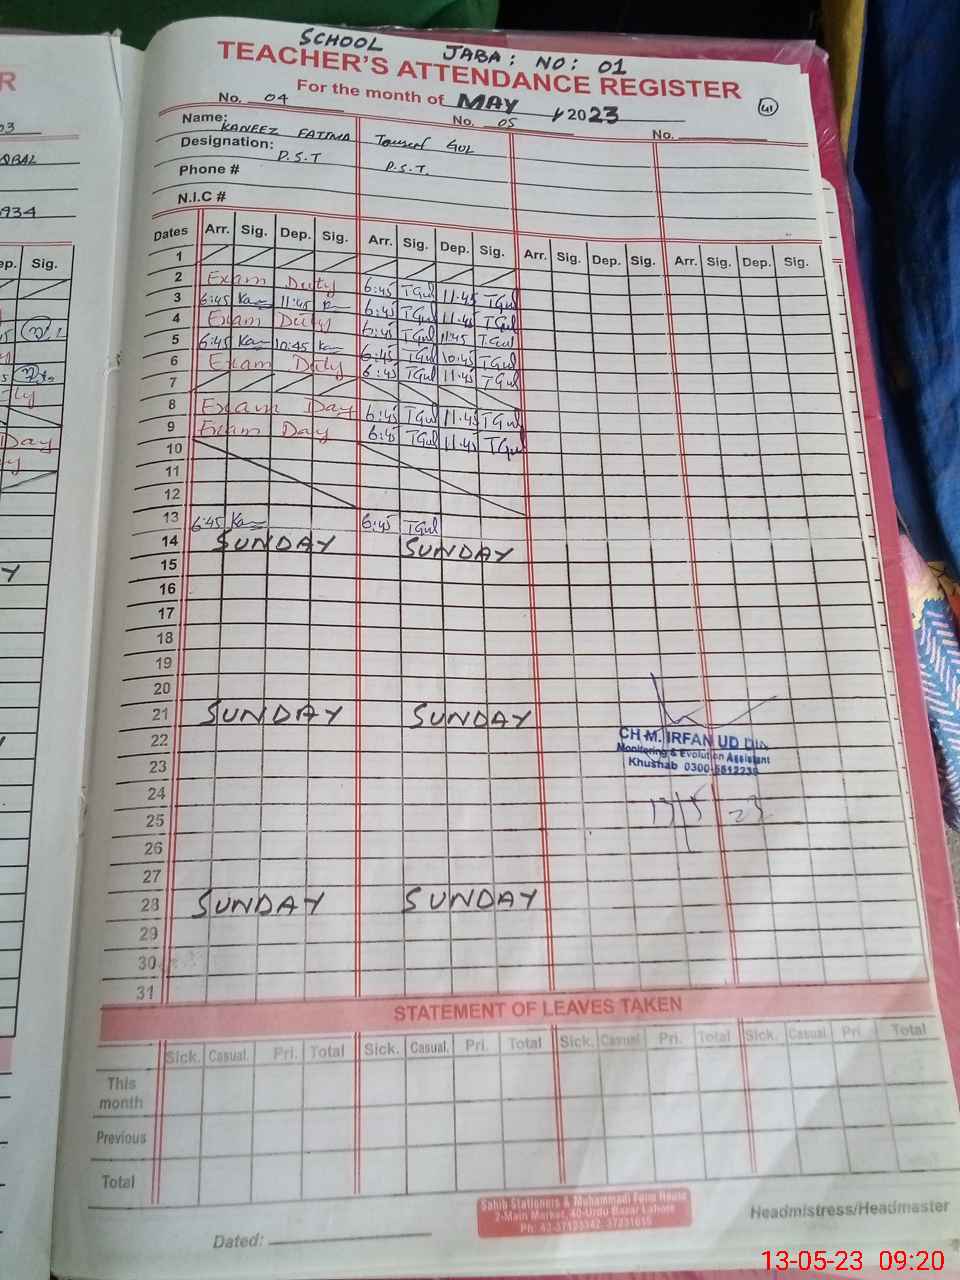 SCHOOL JABA: NO: 01
R
TEACHER'S ATTENDANCE REGISTER
For the month of MAY 2023
41
No. 04 No. 05 No.
Name: KANEEZ FATIMA Gul
Designation: P.S.T P.S.T
Phone #
N.I.C #
934
ep. Sig.
Dates Arr. Sig. Dep. Sig. Arr. Sig. Dep. Sig. Arr. Sig. Dep. Sig. Arr. Sig. Dep. Sig.
1
2 Exam Duty 6:45 TGul 11:45 TGul
3 6:45 Kan 11:45 K 6:45 TGul 11:45 TGul
4 Exam Duty 6:45 TGul 11:45 TGul
5 6:45 Kan 10:45 Kan 6:45 TGul 10:45 TGul
6 Exam Duty 6:45 TGul 11:45 TGul
7
8 Exam Day 6:45 TGul 11:45 TGul
9 Exam Day 6:45 TGul 11:45 TGul
10
11
12
13 6:45 Kan 6:45 TGul
14 SUNDAY SUNDAY
15
16
17
18
19
20
21 SUNDAY SUNDAY
22
23
24
25
26
27
28 SUNDAY SUNDAY
29
30
31
CH M. IRFAN UD DIN
Monitoring & Evolution Assistant
Khushab 0300-5512239
13/5/23
STATEMENT OF LEAVES TAKEN
Sick. Casual. Pri. Total Sick. Casual. Pri. Total Sick. Casual Pri. Total Sick. Casual. Pri. Total
This month
Previous
Total
Sahib Stationers & Muhammadi Form House
2-Main Market, 40-Urdu Bazar Lahore
Ph: 42-37123342, 37231615
Headmistress/Headmaster
Dated:
13-05-23 09:20